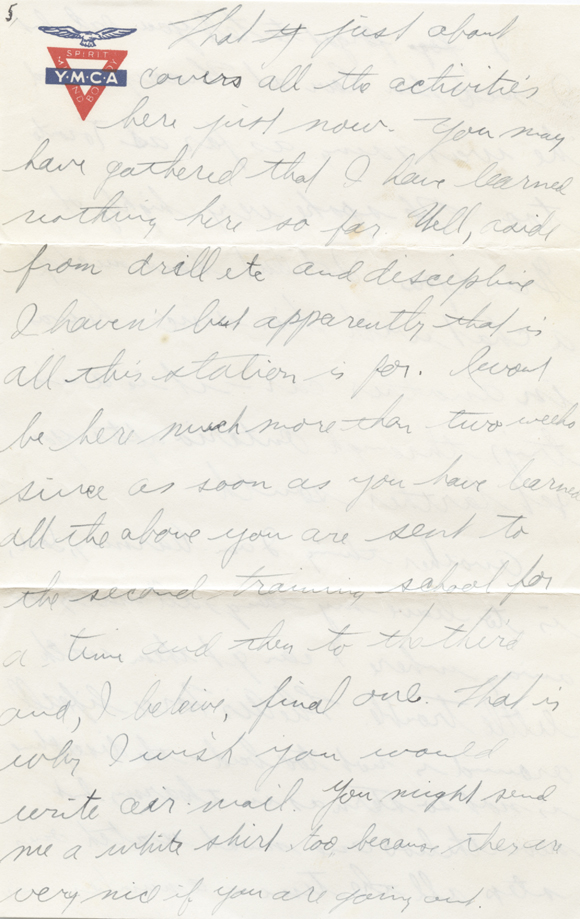 5
That is just about
SPIRIT
Y·M·C·A
MIND
BODY
covers all the activities
here just now. You may
have gathered that I have learned
nothing here so far. Well, aside
from drill etc and discipline
I haven't but apparently that is
all this station is for. I wont
be here much more than two weeks
since as soon as you have learned
all the above you are sent to
the second training school for
a time and then to the third
and, I beleive, final one. That is
why I wish you would
write air-mail. You might send
me a white shirt too because they are
very nice if you are going out.